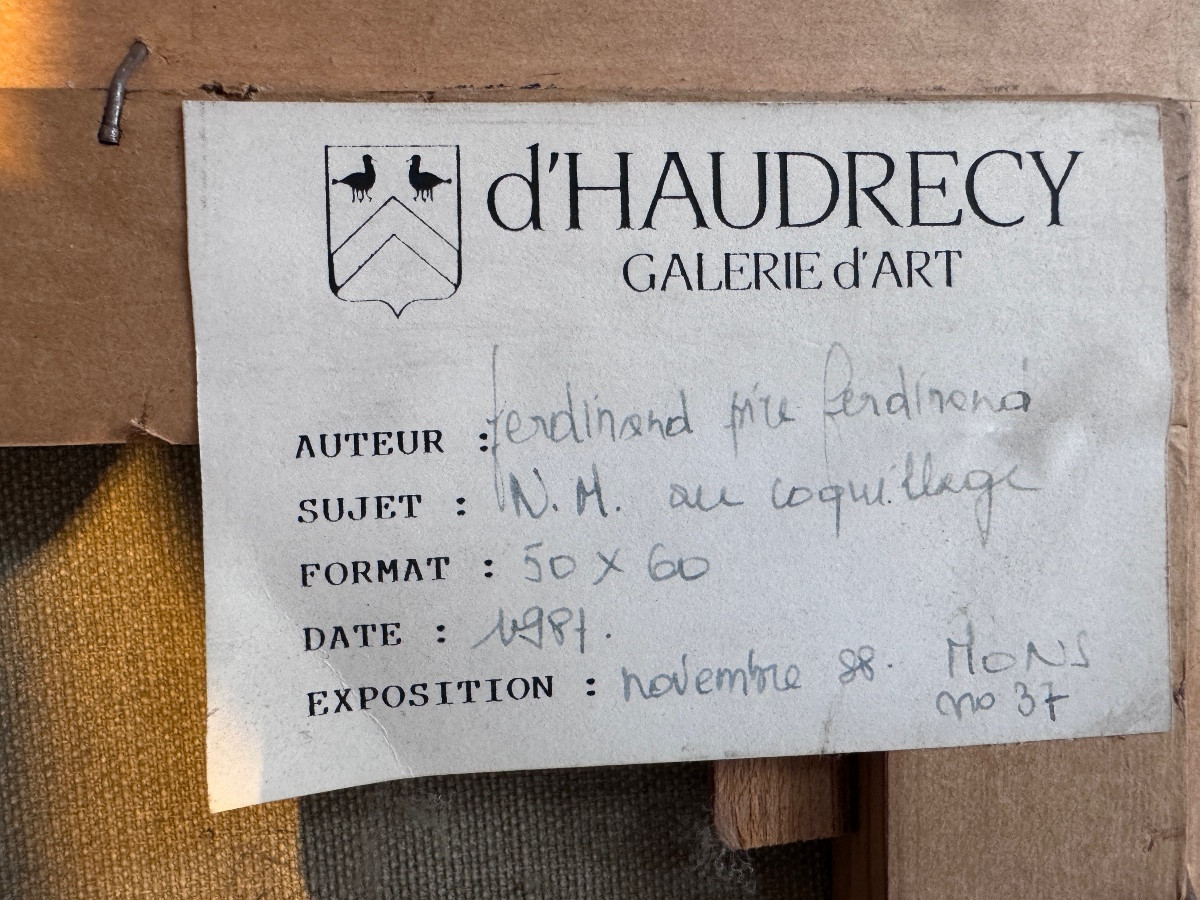 d'HAUDRECY
GALERIE d'ART
AUTEUR : ferdinand pire ferdinand
SUJET : N.M. au coquillage
FORMAT : 50 x 60
DATE : 1987.
EXPOSITION : novembre 88. MONS
no 37